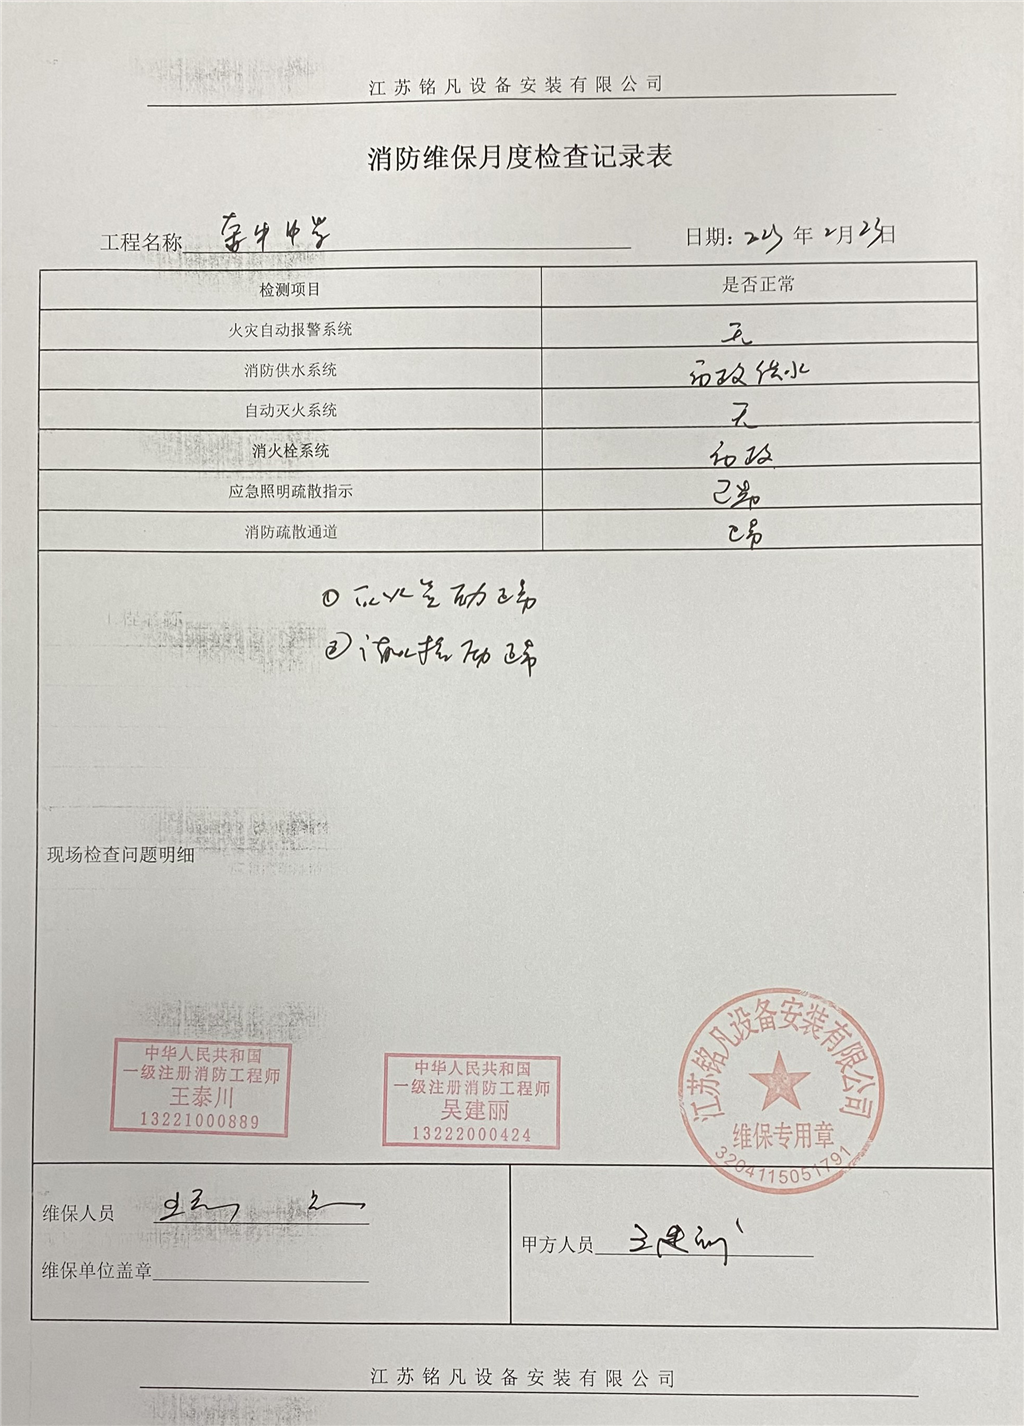 江苏铭凡设备安装有限公司
消防维保月度检查记录表
工程名称 中学 日期: 年2月23日
检测项目 是否正常
火灾自动报警系统 无
消防供水系统 市政供水
自动灭火系统 无
消火栓系统 市政
应急照明疏散指示 正常
消防疏散通道 正常
① 正常
② 消火栓 正常
现场检查问题明细
中华人民共和国
一级注册消防工程师
王泰川
13221000889
中华人民共和国
一级注册消防工程师
吴建丽
13222000424
江苏铭凡设备安装有限公司
维保专用章
3204115051791
维保人员
甲方人员 王建
维保单位盖章
江苏铭凡设备安装有限公司